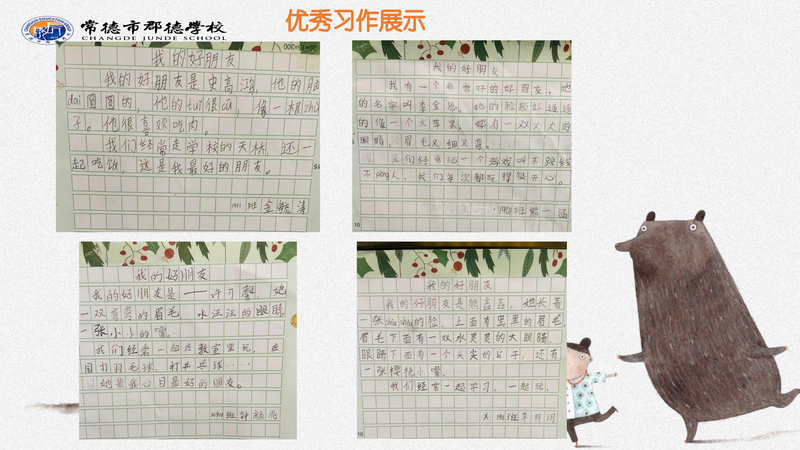 常德市郡德学校
CHANGDE JUNDE SCHOOL
优秀习作展示
我的好朋友
我的好朋友是史高鸿，他的脑
dai圆圆的，他的tuǐ很cū，像一根zhù
子。他很喜欢吃肉。
我们经常走学校的天桥，还一
起吃饭，这是我最好的朋友。
1901班 金毓涛
我的好朋友
我有一个非常好的好朋友，她
的名字叫李金恩。她的脸板红通通
的像一个大苹果，她有一双大大的
眼睛，眉毛又细又弯。
我们经常玩一个游戏叫不
不人，我们每次都玩得很开心。
1901班 涵
我的好朋友
我的好朋友是——许习馨，她
一双弯弯的眉毛，水汪汪的眼睛，
一张小小的嘴。
我们经常一起在教室里玩，在
园打羽毛球，打乒乓球……
她是我心目最好的朋友。
1901班 钟
我的好朋友
我的好朋友是熊鑫鑫，她长着
一张的脸，上面有黑黑的眉毛，
眉毛下面有一双水灵灵的大眼睛，
眼睛下面有一个尖尖的bí子，还有
一张樱桃小嘴。
我们经常一起学习，一起玩。